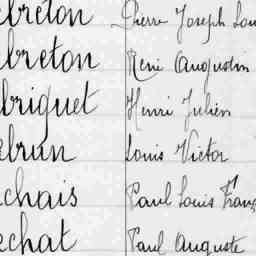 ebreton Pierre Joseph Lou
ebreton René Augustin
briquet Henri Julien
ebrun Louis Victor
echais Paul Louis Franç
echat Paul Auguste